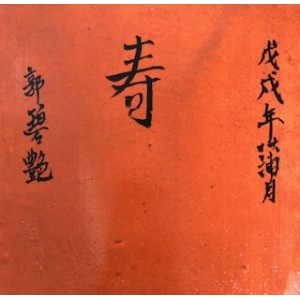 戊戌年蒲月
寿
郭碧艷